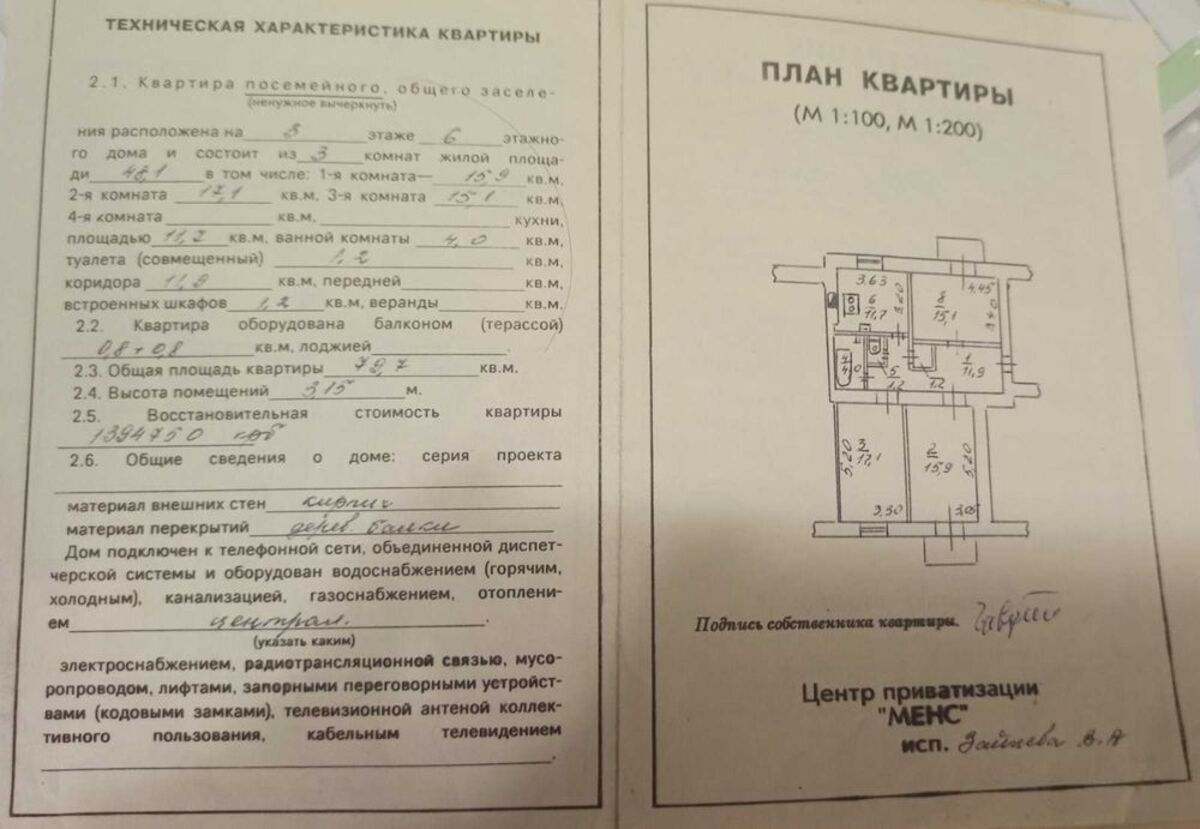 ТЕХНИЧЕСКАЯ ХАРАКТЕРИСТИКА КВАРТИРЫ
2.1. Квартира посемейного, общего заселе-
(ненужное вычеркнуть)
ния расположена на 3 этаже 6 этажно-
го дома и состоит из 3 комнат жилой площа-
ди 48,1 в том числе: 1-я комната— 15,9 кв.м,
2-я комната 17,1 кв.м, 3-я комната 15,1 кв.м,
4-я комната кв.м, кухни,
площадью 11,7 кв.м, ванной комнаты 4,0 кв.м,
туалета (совмещенный) 1,2 кв.м,
коридора 11,9 кв.м, передней кв.м,
встроенных шкафов 1,2 кв.м, веранды кв.м.
2.2. Квартира оборудована балконом (терассой)
0,8 + 0,8 кв.м, лоджией .
2.3. Общая площадь квартиры 79,7 кв.м.
2.4. Высота помещений 3,15 м.
2.5. Восстановительная стоимость квартиры
1394750 крб
2.6. Общие сведения о доме: серия проекта
материал внешних стен кирпич
материал перекрытий дерев. балки
Дом подключен к телефонной сети, объединенной диспет-
черской системы и оборудован водоснабжением (горячим,
холодным), канализацией, газоснабжением, отоплени-
ем централ.
(указать каким)
электроснабжением, радиотрансляционной связью, мусо-
ропроводом, лифтами, запорными переговорными устройст-
вами (кодовыми замками), телевизионной антеной коллек-
тивного пользования, кабельным телевидением
ПЛАН КВАРТИРЫ
(М 1:100, М 1:200)
3.63
4.45
6
11,7
3.20
8
15,1
3.40
4
4,0
5
1,2
1,2
1
11,9
5,20
3
17,1
2
15,9
5.20
3.30
3.05
Подпись собственника квартиры.
Центр приватизации
"МЕНС"
исп. Зайцева В.А